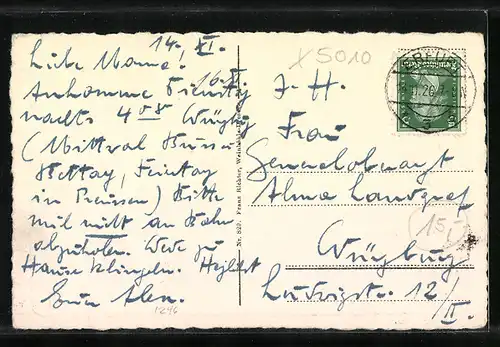 14. XI.
Liebe Mama!
Ankomme Dienstag 16. XI.
nachts 4 08 Würzbg
(Mittwoch Buss-
Bettag, Feiertag
in Preussen) Bitte
mich nicht an Bahn
abzuholen. Werde zu
Hause klingen. Herzlichst
Euer Alex.
1246
Nr. 829. Franz Richter,
X 5010
I. H.
Frau
Generaloberarzt
Alma Landgraf
(15.)
Würzburg
Ludwigstr. 12/
II.